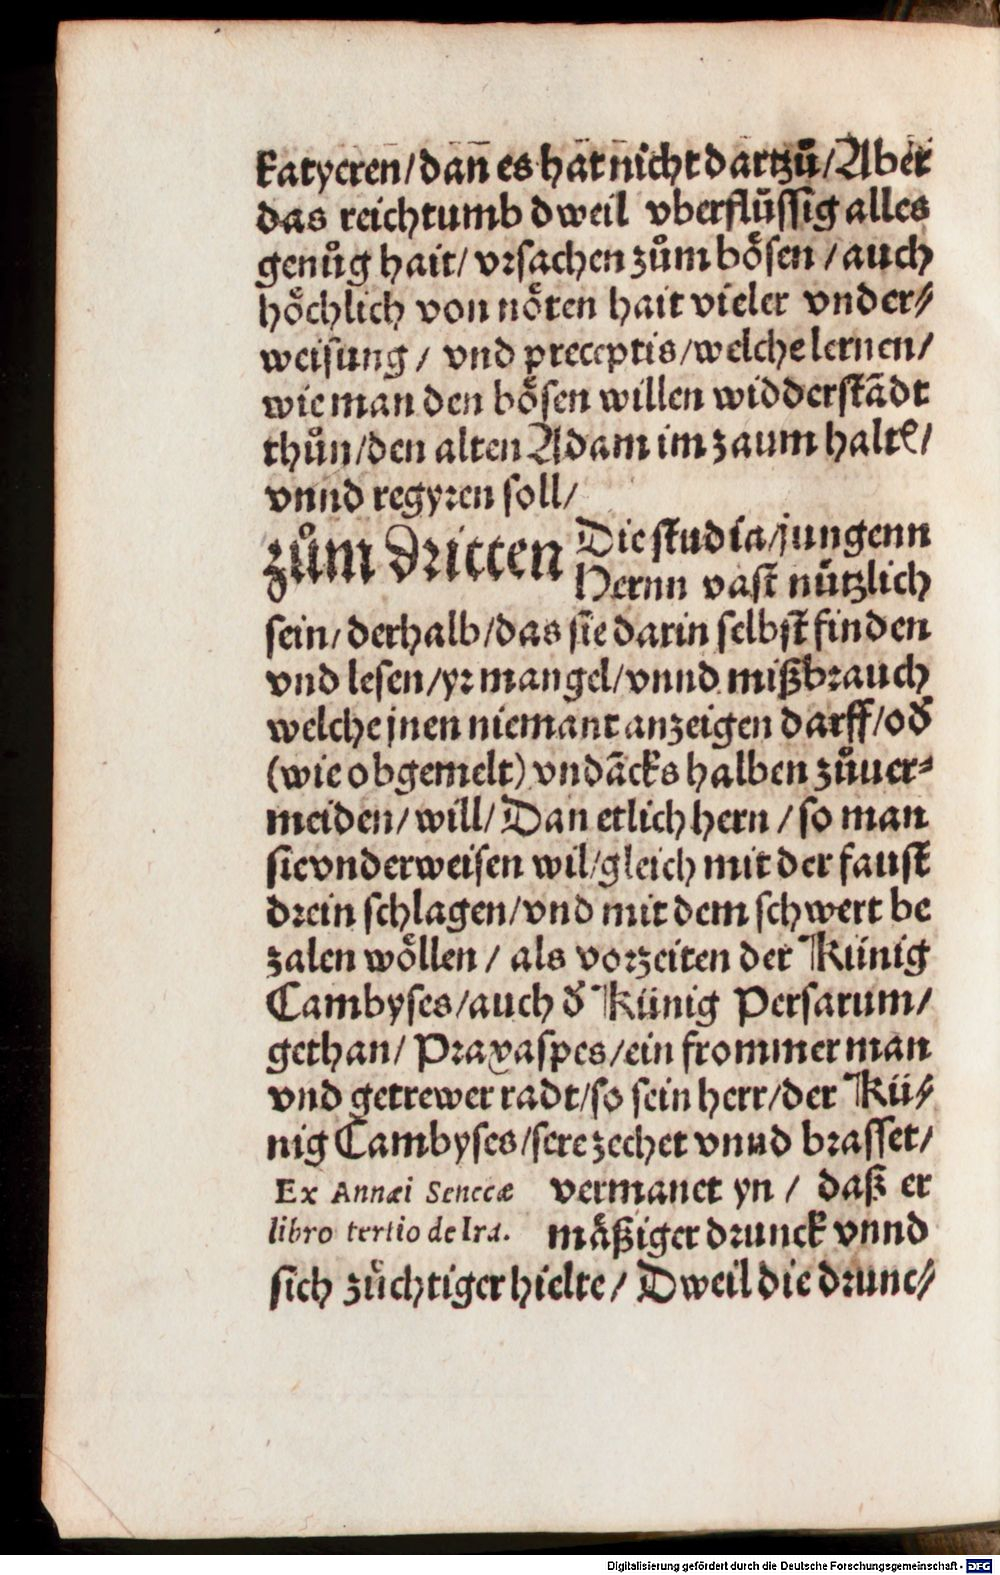 katyeren/dañ es hat nicht dartzů/Aber
das reichtumb dweil vberflüssig alles
genůg hait/ vrsachen zům bösen /auch
höchlich von nöten hait vieler vnder⸗
weisung/ vnd preceptis/welche lernen/
wie man den bösen willen widderstādt
thůn/den alten Adam im zaum haltē/
vnnd regyren soll/
zům dritten Die studia/jungenn
Hernn vast nützlich
sein/ derhalb/das sie darin selbst finden
vnd lesen/yr mangel/vnnd mißbrauch
welche jnen niemant anzeigen darff/od̕
(wie obgemelt) vndācks halben zůuer⸗
meiden/will/Dan etlich hern /so man
sie vnderweisen wil/gleich mit der faust
drein schlagen/vnd mit dem schwert be
zalen wöllen/ als vorzeiten der Künig
Cambyses/auch d̕ Künig Persarum/
gethan/ Praxaspes/ein frommer man
vnd getrewer radt/so sein herr/der Kü⸗
nig Cambyses/sere zechet vnnd brasset/
Ex Annæi Senecæ
libro tertio de Ira.
vermanet yn / daß er
mäßiger drunck vnnd
sich züchtiger hielte/ Dweil die drunc⸗
Digitalisierung gefördert durch die Deutsche Forschungsgemeinschaft - DFG